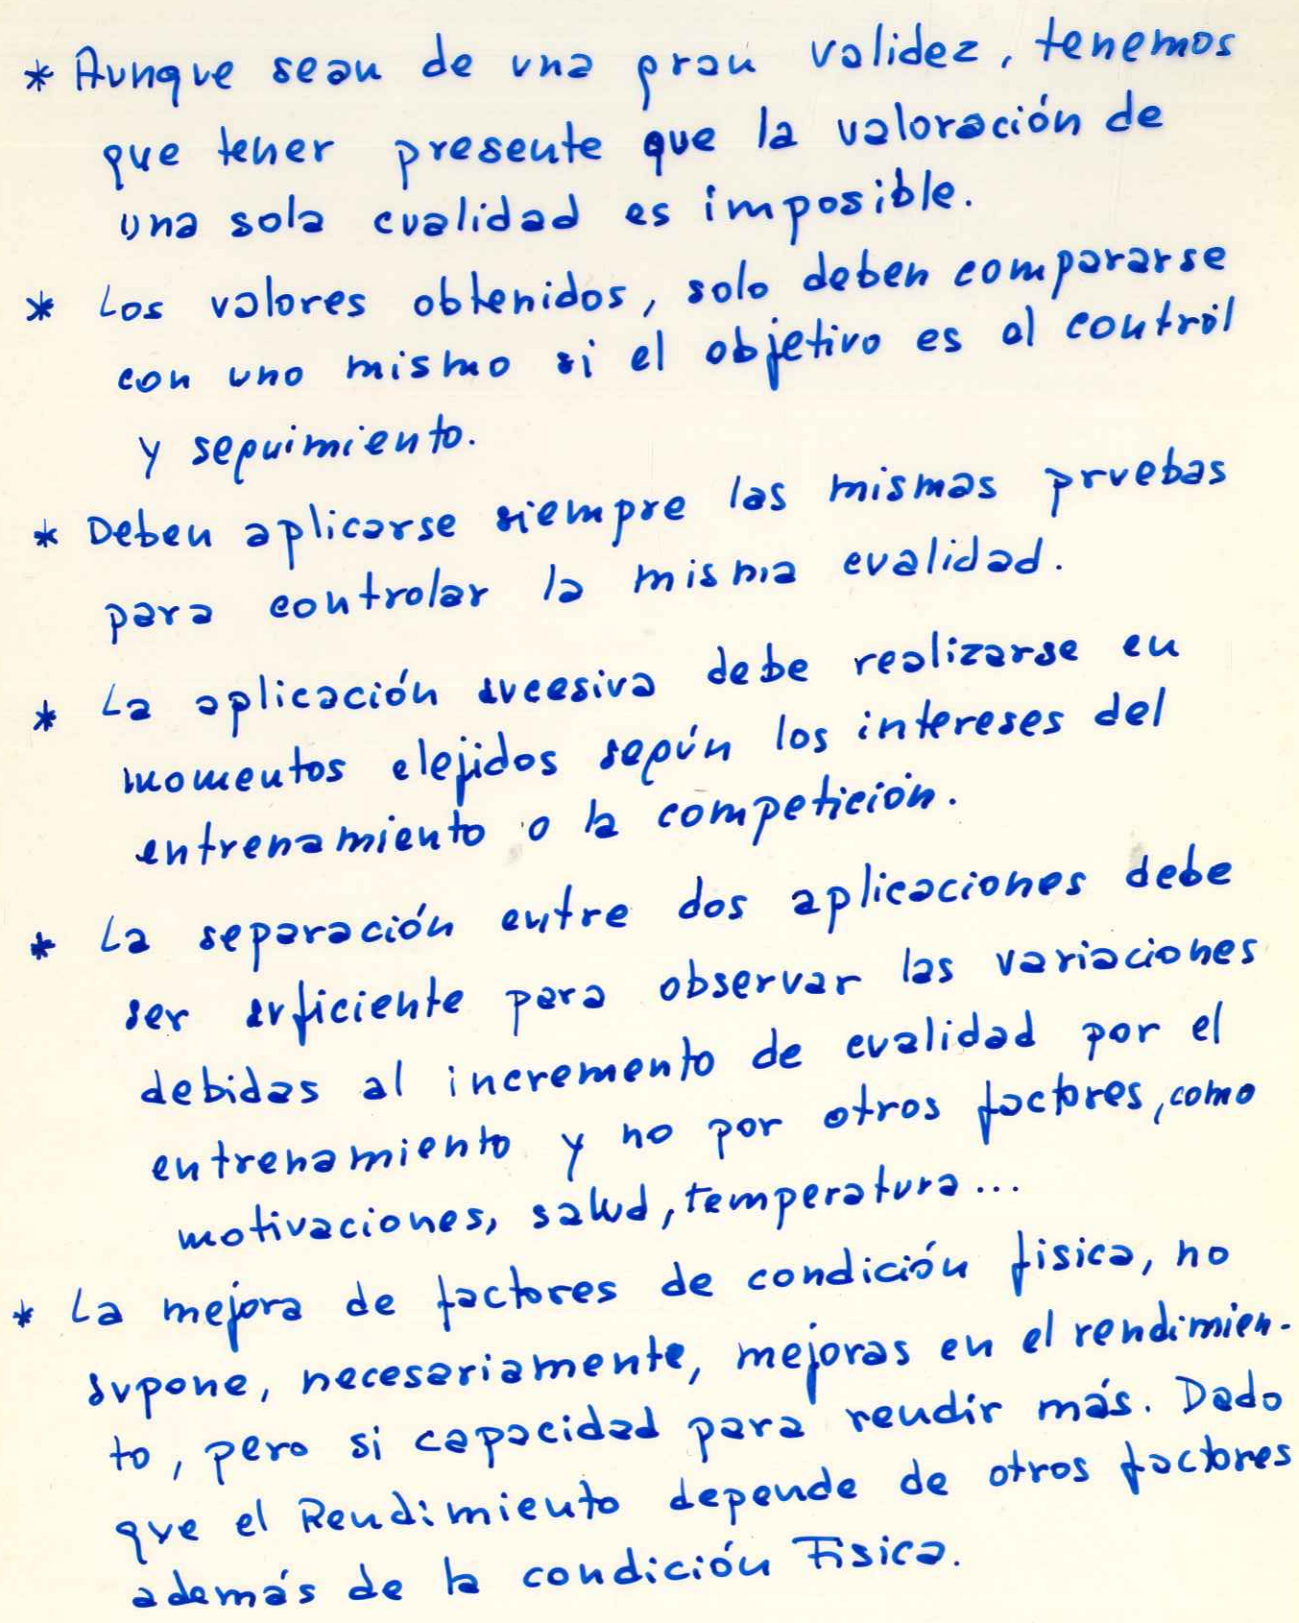 * Aunque sean de una gran validez, tenemos
que tener presente que la valoración de
una sola cualidad es imposible.
* Los valores obtenidos, solo deben compararse
con uno mismo si el objetivo es al contról
y seguimiento.
* Deben aplicarse siempre las mismas pruebas
para controlar la misma cualidad.
* La aplicación sucesiva debe realizarse en
momentos elejidos según los intereses del
entrenamiento o la competición.
* La separación entre dos aplicaciones debe
ser suficiente para observar las variaciones
debidas al incremento de cualidad por el
entrenamiento y no por otros factores, como
motivaciones, salud, temperatura...
* La mejora de factores de condición fisica, no
supone, necesariamente, mejoras en el rendimien-
to, pero si capacidad para rendir más. Dado
que el Rendimiento depende de otros factores
además de la condición Fisica.